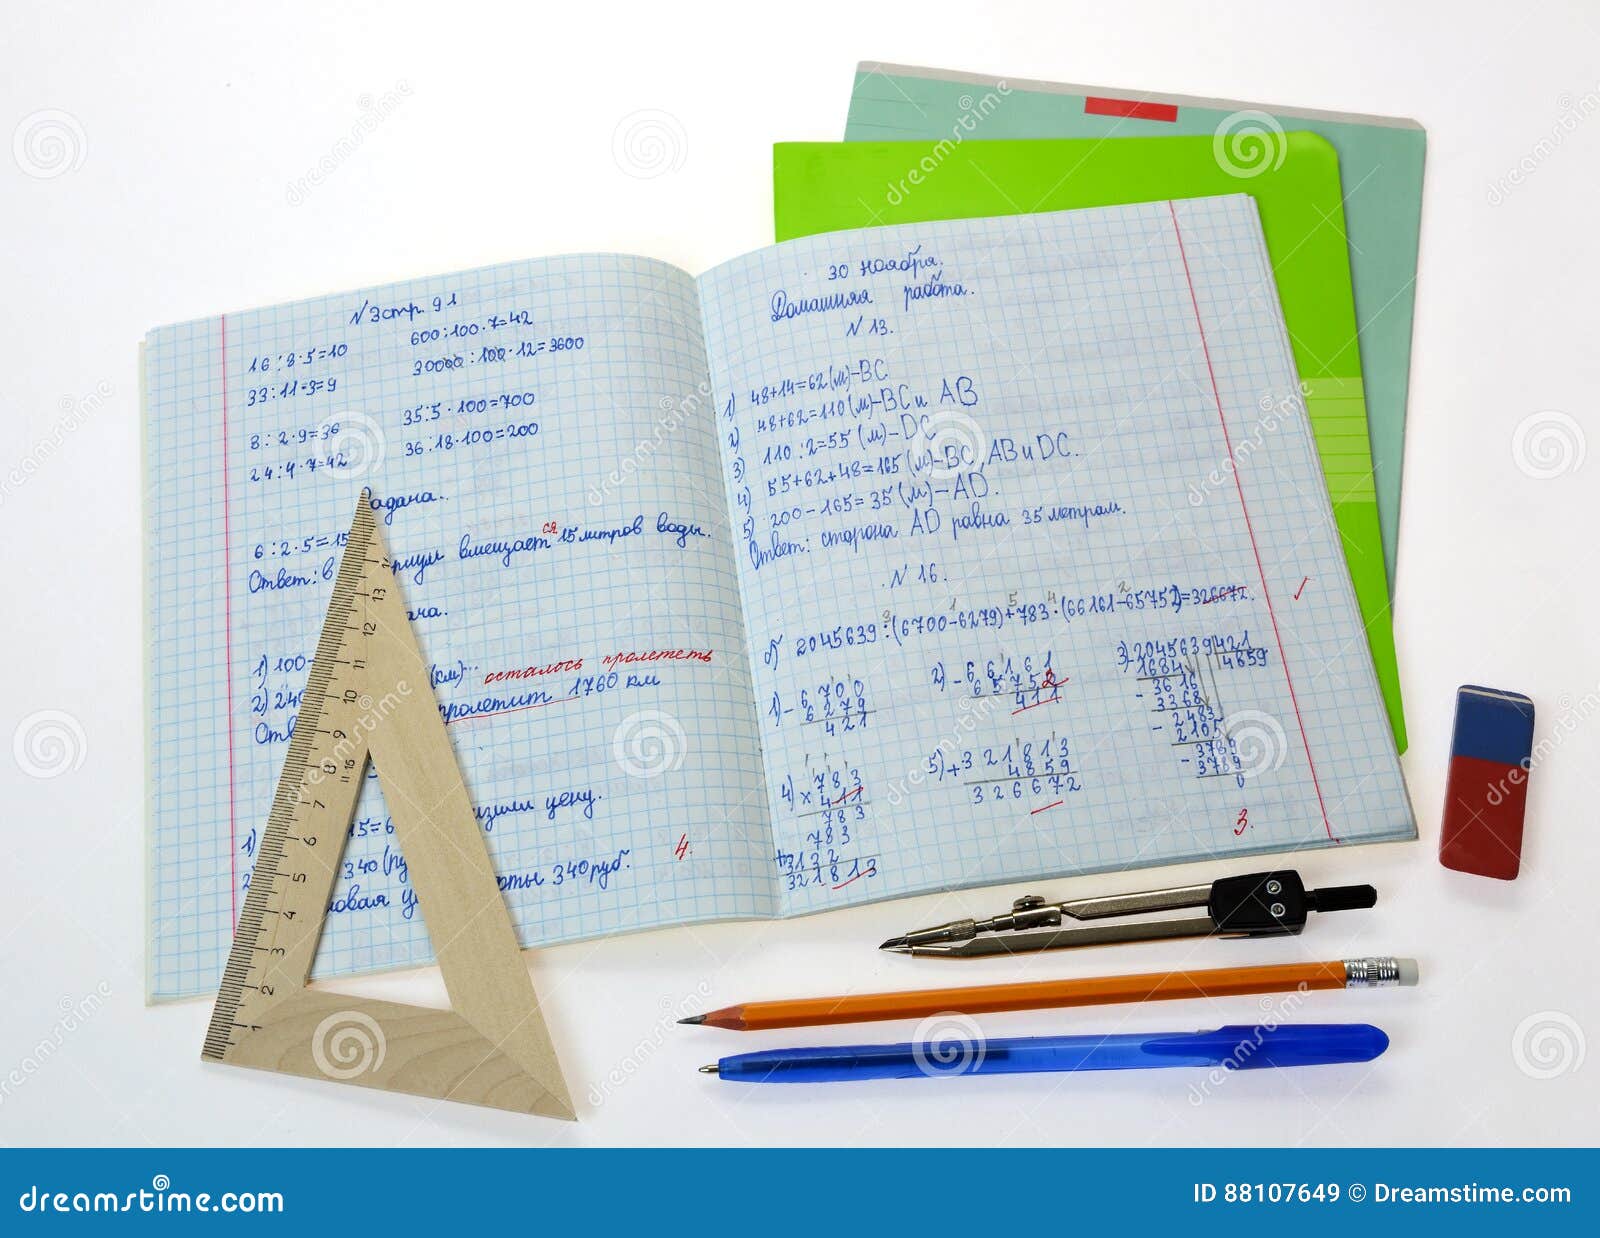 N 3 стр. 91
16:8·5=10
33:11·3=9
8:2·9=36
24:4·7=42
600:100·7=42
30000:100·12=3600
35:5·100=700
36:18·100=200
адача.
6:2·5=15
Ответ: в риум вмещается 15 литров воды.
ача.
1) 100- (км)-- осталось пролететь
2) 24
Отв пролетит 1760 км
зили цену.
1) 15=6
2) 340(ру
новая ц рты 340 руб.
4.
30 ноября.
Домашняя работа.
N 13.
1) 48+14=62(м)-BC
2) 48+62=110(м)-BC и AB
3) 110:2=55(м)-DC
4) 55+62+48=165(м)-BC, AB и DC.
5) 200-165=35(м)-AD.
Ответ: сторона AD равна 35 метрам.
N 16.
б) 2045639:(6700-6279)+783·(66161-65752)=326672.
1) - 6700
6279
421
2) - 66161
65752
411
3) - 2045639 421
1684 4859
- 3616
3368
- 2483
2105
- 3789
3789
0
4) × 783
411
783
783
+ 3132
321813
5) + 321813
4859
326672
3.
14
13
12
11
10
9
8
7
6
5
4
3
2
1
dreamstime.com
ID 88107649 © Dreamstime.com